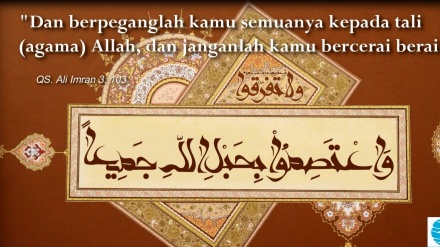 "Dan berpeganglah kamu semuanya kepada tali
(agama) Allah, dan janganlah kamu bercerai berai
QS. Ali Imran 3: 103
ولا تفرقوا
وَاعْتَصِمُوْا بِحَبْلِ اللّٰهِ جَمِيعاً